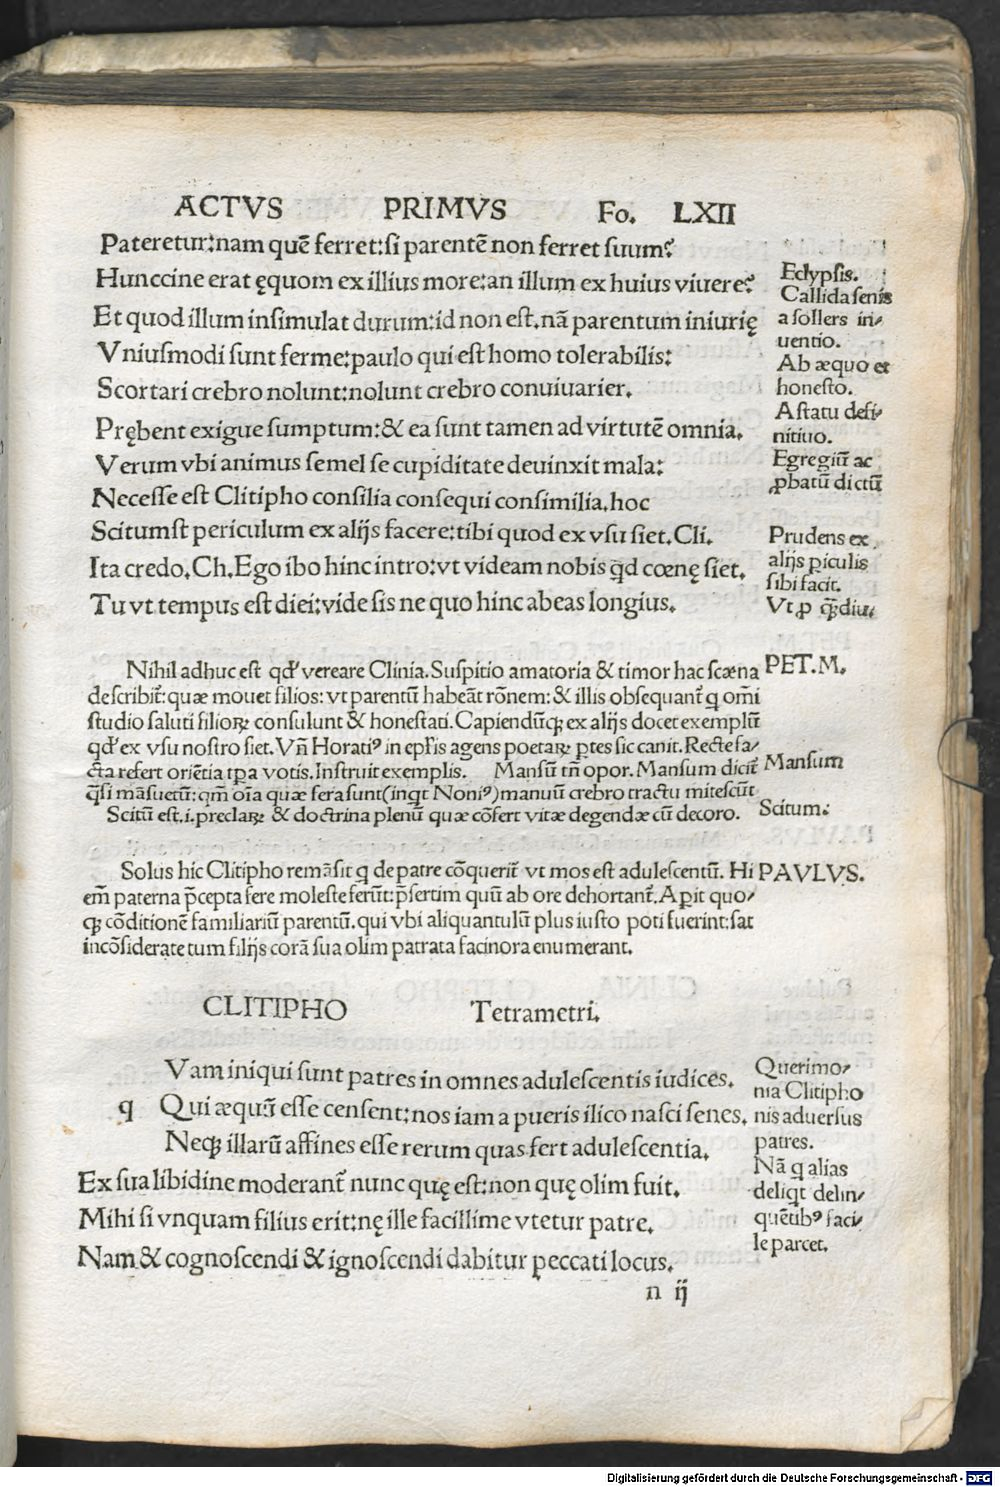 ACTVS PRIMVS Fo. LXII
Pateretur:nam quē ferret:si parentē non ferret suum?
Hunccine erat ęquom ex illius more:an illum ex huius viuere?
Et quod illum insimulat durum:id non est.nā parentum iniurię
Vniusmodi sunt ferme:paulo qui est homo tolerabilis:
Scortari crebro nolunt:nolunt crebro conuiuarier.
Prębent exigue sumptum:& ea sunt tamen ad virtutē omnia.
Verum vbi animus semel se cupiditate deuinxit mala:
Necesse est Clitipho consilia consequi consimilia.hoc
Scitumst periculum ex alijs facere:tibi quod ex vsu siet.Cli.
Ita credo.Ch.Ego ibo hinc intro:vt videam nobis qd cœnę siet.
Tu vt tempus est diei:vide sis ne quo hinc abeas longius.
Eclypsis.
Callida senis
a sollers in/
uentio.
Ab æquo et
honesto.
A statu defi/
nitiuo.
Egregiū ac
ꝓbatū dictū
Prudens ex
alijs ꝑiculis
sibi facit.
Vt ꝓ qȝdiu.
Nihil adhuc est qd' vereare Clinia.Suspitio amatoria & timor hac scæna
describit̄:quæ mouet filios:vt parentū habeāt rōnem:& illis obsequant̄ q om̄i
studio saluti filioꝝ consulunt & honestati.Capiendūqȝ ex alijs docet exemplū
qd' ex vsu nostro siet.Vn̄ Horatiꝰ in epl'is agens poetaꝝ ptes sic canit.Recte fa/
cta refert oriētia tpa votis.Instruit exemplis. Mansū tn̄ opor.Mansum dicit̄
q̄si māsuetū:qm̄ oīa quæ fera sunt(inqt Noniꝰ)manuū crebro tractu mitescūt
Scitū est.i.preclaꝝ & doctrina plenū quæ cōfert vitæ degendæ cū decoro.
PET.M.
Mansum
Scitum:
Solus hic Clitipho remāsit q de patre cōquerit̄ vt mos est adulescentū. Hi
em̄ paterna p̄cepta fere moleste ferūt:p̄sertim quū ab ore dehortant̄.Aꝑit quo/
qȝ cōditionē familiariū parentū.qui vbi aliquantulū plus iusto poti fuerint:sat
incōsiderate tum filijs corā sua olim patrata facinora enumerant.
PAVLVS.
CLITIPHO Tetrametri.
q Vam iniqui sunt patres in omnes adulescentis iudices.
Qui æquū esse censent:nos iam a pueris ilico nasci senes.
Neqȝ illarū affines esse rerum quas fert adulescentia.
Ex sua libidine moderant̄ nunc quę est:non quę olim fuit.
Mihi si vnquam filius erit:nę ille facillime vtetur patre.
Nam & cognoscendi & ignoscendi dabitur peccati locus.
Querimo/
nia Clitipho
nis aduersus
patres.
Nā q alias
deliqt delin/
quētibꝰ faci/
le parcet.
n ij
Digitalisierung gefördert durch die Deutsche Forschungsgemeinschaft - DFG